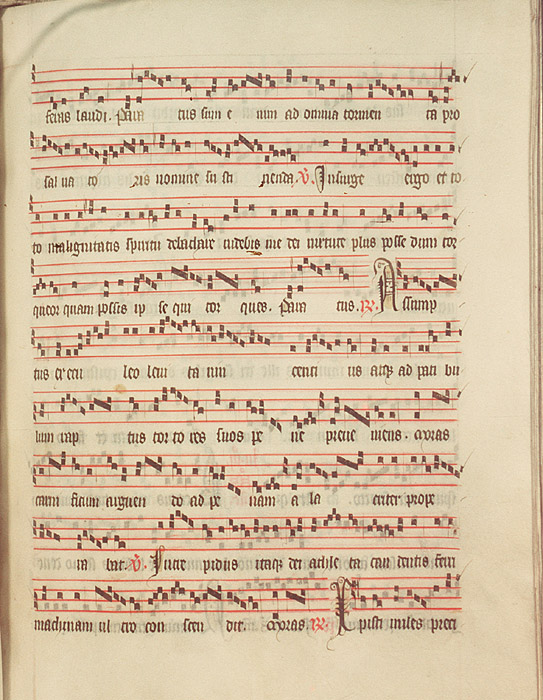 fenis laudi. Para tus sum e nim ad omnia tormen ta pro
sal ua to ris nomine su sti nenda. V. Insurge ergo et to
to malignitatis spiritu debachare uidebis me dei uirtute plus posse dum tor
queor quam possis ip se qui tor ques. Para tus. R. Assump
tus ex ecu leo leui ta uin centi us atq ad pati bu
lum rap tus tor to res suos pe ne preue niens. moras
carni ficum arguen do ad pe nam a la criter prope
ra bat. V. Intre pidus itaq dei athle ta can dentis ferri
machinam ul tro con scen dit. moras. R. Xpisti miles preci